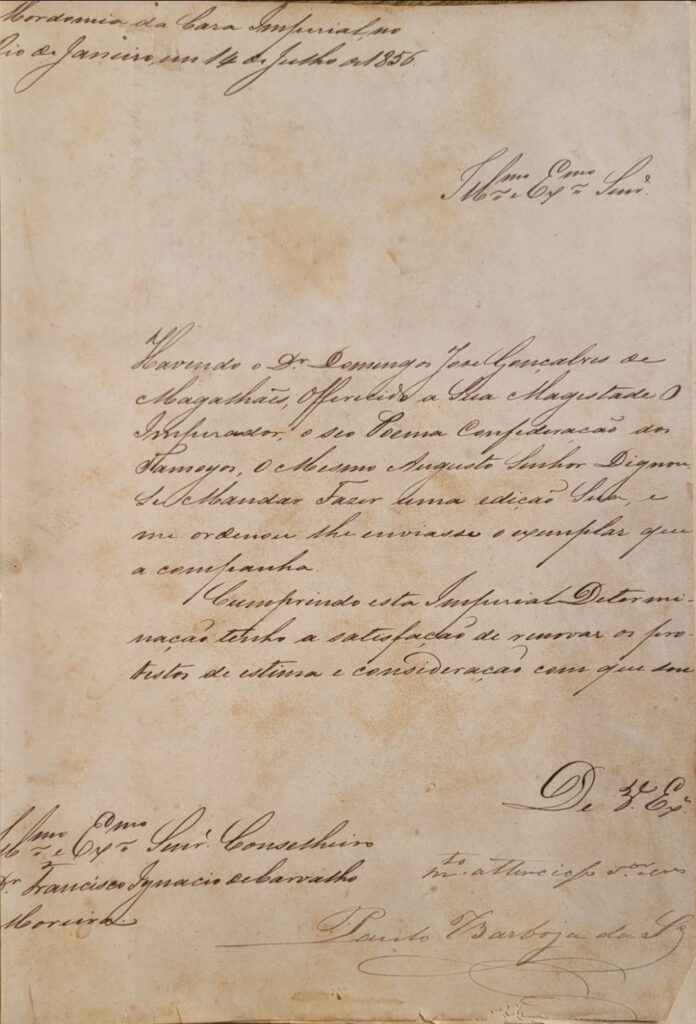 Mordomia da Caza Imperial, no
Rio de Janeiro, em 14 de Julho de 1856.
Illmo e Exmo Senr.
Havendo o Dr. Domingos Jose Gonçalves de
Magalhães, Offerecido a Sua Magestade O
Imperador, o seo Poema Confederação dos
Tamoyos, O Mesmo Augusto Senhor Dignou-
Se Mandar Fazer uma edição Sua, e
me ordenou lhe enviasse o exemplar que
a companha.
Cumprindo esta Imperial Determi-
nação tenho a satisfação de renovar os pro-
testos de estima e consideração com que sou
De V. Exa.
Illmo e Exmo Senr. Conselheiro
Dr. Francisco Ignacio de Carvalho
Moreira
mto. attencioso
Paulo Barboza da Sa